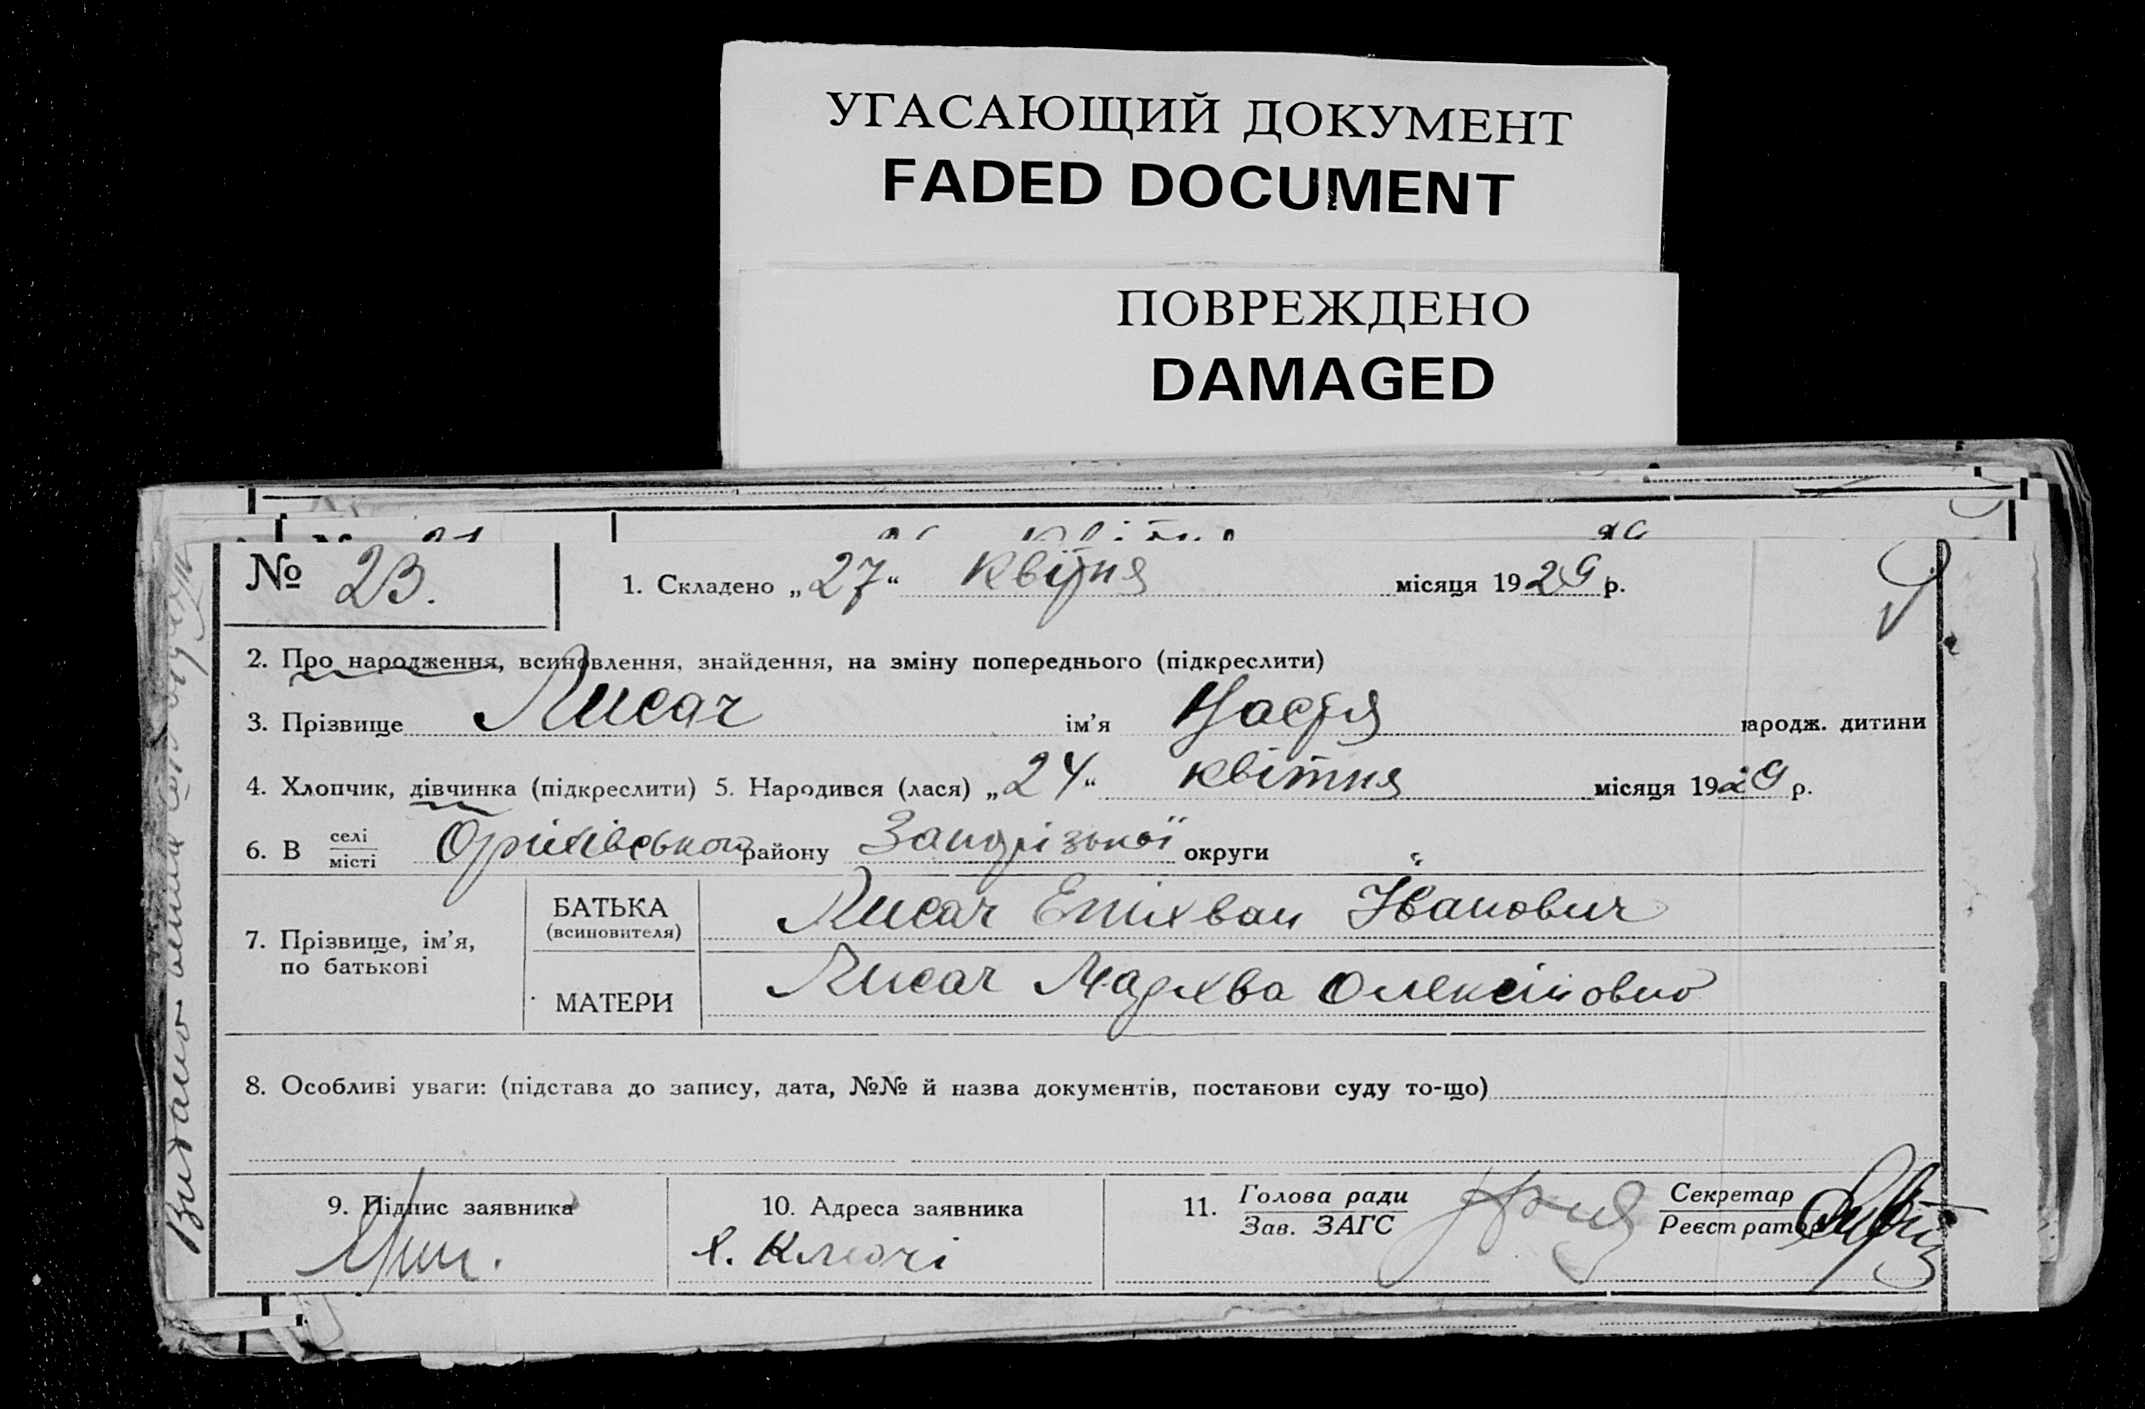 УГАСАЮЩИЙ ДОКУМЕНТ
FADED DOCUMENT
ПОВРЕЖДЕНО
DAMAGED
№ 23. 1. Складено „27“ Квітня місяця 1929 р.
2. Про народження, всиновлення, знайдення, на зміну попереднього (підкреслити)
3. Прізвище Лисач ім’я Настя народж. дитини
4. Хлопчик, дівчинка (підкреслити) 5. Народився (лася) „24“ квітня місяця 1929 р.
6. В селі місті Оріхівського району Запорізької округи
7. Прізвище, ім’я, по батькові
БАТЬКА (всиновителя) Лисач Епіхван Іванович
МАТЕРИ Лисач Мархва Олексіївно
8. Особливі уваги: (підстава до запису, дата, №№ й назва документів, постанови суду то-що)
9. Підпис заявника 10. Адреса заявника 11. Голова ради Зав. ЗАГС Секретар Реєстратор
х. Ключі
Видано